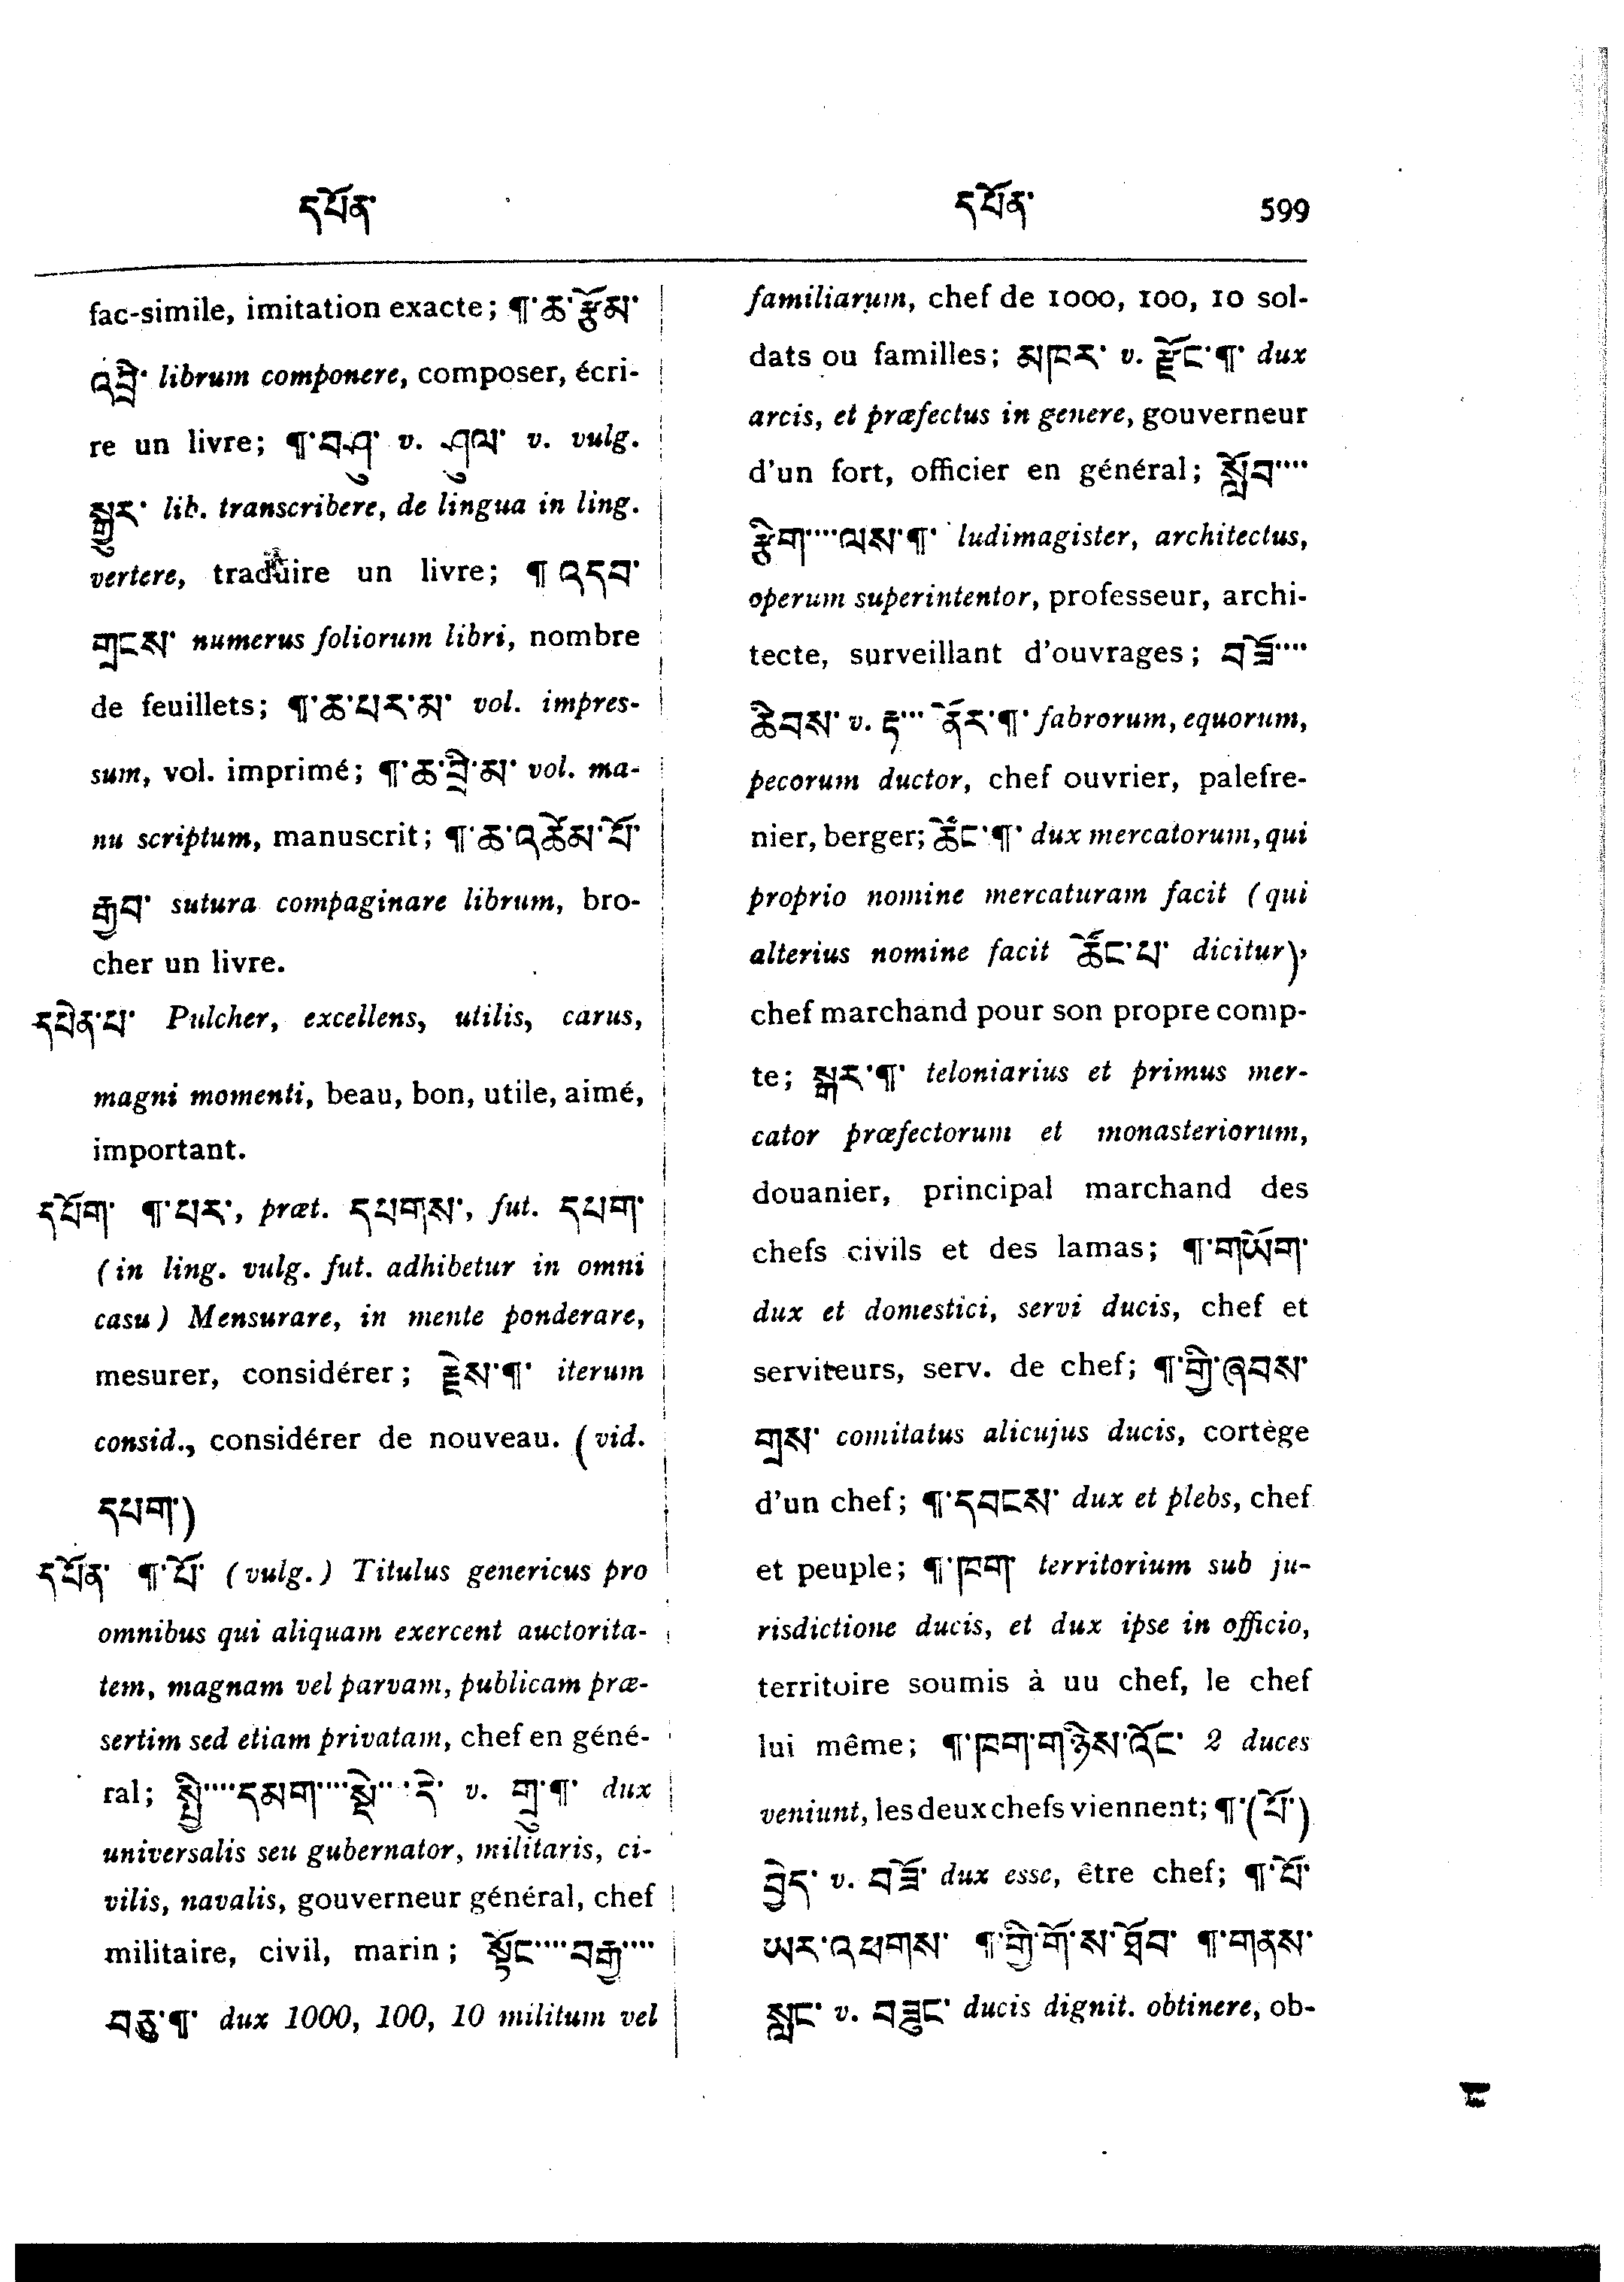 དཔོན་
དཔོན་ 599
fac-simile, imitation exacte; ¶་ཆ་རྩོམ་
འབྲི་ librum componere, composer, écri-
re un livre; ¶་བཤུ་ v. ཤུལ་ v. vulg.
སྒྱུར་ lib. transcribere, de lingua in ling.
vertere, traduire un livre; ¶ འདབ་
གྲངས་ numerus foliorum libri, nombre
de feuillets; ¶་ཆ་པར་མ་ vol. impres-
sum, vol. imprimé; ¶་ཆ་བྲི་མ་ vol. ma-
nu scriptum, manuscrit; ¶་ཆ་འཚེམ་པོ་
རྒྱབ་ sutura compaginare librum, bro-
cher un livre.
དཔེན་པ་ Pulcher, excellens, utilis, carus,
magni momenti, beau, bon, utile, aimé,
important.
དཔོག་ ¶་པར་, præt. དཔགས་, fut. དཔག་
(in ling. vulg. fut. adhibetur in omni
casu) Mensurare, in mente ponderare,
mesurer, considérer; རྗེས་¶་ iterum
consid., considérer de nouveau. (vid.
དཔག་)
དཔོན་ ¶་པོ་ (vulg.) Titulus genericus pro
omnibus qui aliquam exercent auctorita-
tem, magnam vel parvam, publicam præ-
sertim sed etiam privatam, chef en géné-
ral; སྤྱི་····དམག་····སྡེ་···དེ་ v. གྲུ་¶་ dux
universalis seu gubernator, militaris, ci-
vilis, navalis, gouverneur général, chef
militaire, civil, marin; སྟོང་····བརྒྱ་····
བཅུ་¶་ dux 1000, 100, 10 militum vel
familiarum, chef de 1000, 100, 10 sol-
dats ou familles; མཁར་ v. རྫོང་¶་ dux
arcis, et præfectus in genere, gouverneur
d'un fort, officier en général; སློབ་····
རྩིག་····ལས་¶་ ludimagister, architectus,
operum superintentor, professeur, archi-
tecte, surveillant d'ouvrages; བཟོ་····
ཆིབས་ v. རྟ་··· ནོར་¶་ fabrorum, equorum,
pecorum ductor, chef ouvrier, palefre-
nier, berger; ཚོང་¶་ dux mercatorum, qui
proprio nomine mercaturam facit (qui
alterius nomine facit ཚོང་པ་ dicitur),
chef marchand pour son propre comp-
te; སྒར་¶་ teloniarius et primus mer-
cator præfectorum et monasteriorum,
douanier, principal marchand des
chefs civils et des lamas; ¶་གཡོག་
dux et domestici, servi ducis, chef et
serviteurs, serv. de chef; ¶་གྱི་ཞབས་
གྲས་ comitatus alicujus ducis, cortège
d'un chef; ¶་དབངས་ dux et plebs, chef
et peuple; ¶་ཁག་ territorium sub ju-
risdictione ducis, et dux ipse in officio,
territoire soumis à uu chef, le chef
lui même; ¶་ཁག་གཉིས་འོང་ 2 duces
veniunt, les deux chefs viennent; ¶་(པོ་)
བྱེད་ v. བཟོ་ dux esse, être chef; ¶་པོ་
ཡར་འཕགས་ ¶་གྱི་གོ་ས་ཐོབ་ ¶་གནས་
སླང་ v. བཟུང་ ducis dignit. obtinere, ob-